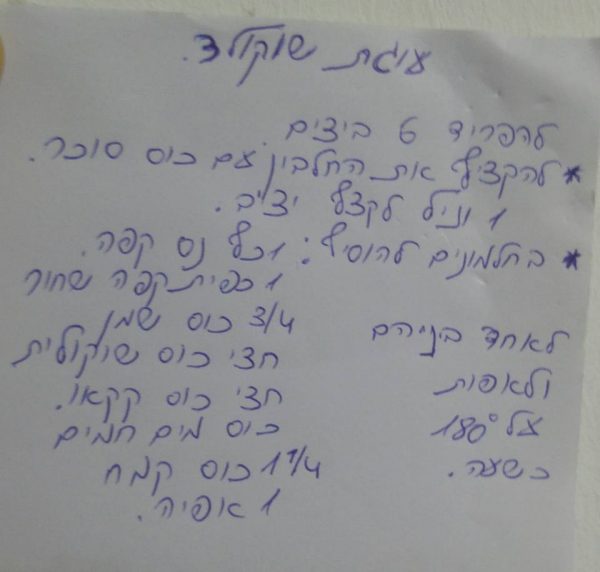 עוגת שוקולד.
להפריד 6 ביצים.
* להקציף את החלבין עם כוס סוכר.
1 וניל לקצף יציב.
* בחלמונים להוסיף: 1 כף נס קפה.
1 כפית קפה שחור
3/4 כוס שמן
חצי כוס שוקולית
חצי כוס קקאו.
כוס מים חמים
1 1/4 כוס קמח
1 אפיה.
לאחד ביניהם
ולאפות
על 180°
כשעה.